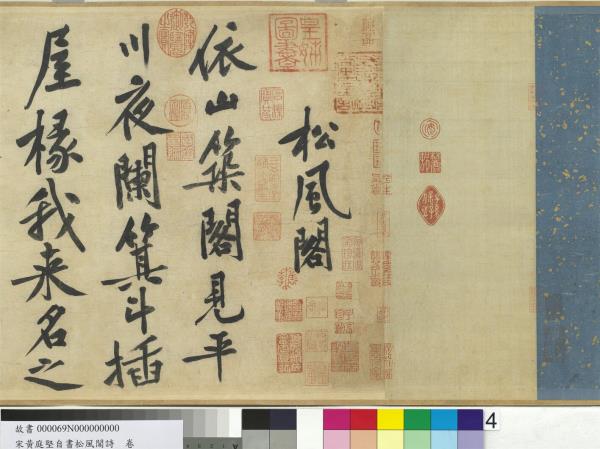 松風閣
依山築閣見平
川夜闌箕斗插
屋椽我来名之
皇姊圖書
4
故書 000069N000000000
宋黃庭堅自書松風閣詩 卷